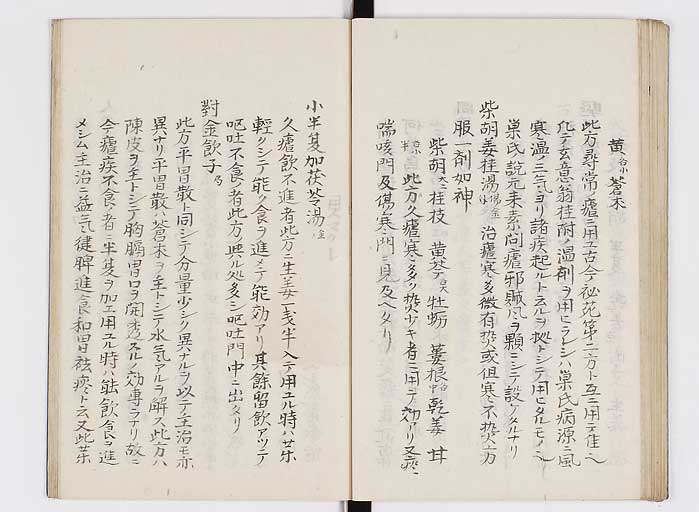 黄 蒼朮
此方尋常ノ瘧ニ用エ古今祕苑第二方ト互ニ用テ佳ヘ
化テ玄意翁桂附ノ温剤ヲ用ヒラレシハ巣氏病源ニ風
寒温ノ三氣ヨリ諸疾起ルト云ルヲ拠トシテ用ヒタルモノヘ
巣氏ノ説元来素問瘧邪賊風ヲ顆ニシテ設ケタルナリ
柴胡姜桂湯 治瘧寒多微有熱或但寒不熱此方
服一剤如神
柴胡 桂枝 黄芩 牡蛎 蔞根 乾姜 甘
此方久瘧寒多ク熱少キ者ニ用テ効アリ又痰
喘咳門及傷寒門ニ見及ヘタリ
小半夏加茯苓湯
久瘧飲不進者此方ニ生姜一戔半入テ用ユル時ハ甘
軽クシテ能ク食ヲ進メテ能効アリ其餘留飲アツテ
嘔吐不食ノ者此方ノ興ル処多シ嘔吐門中ニ出タリ
對金飲子
此方平胃散ト同シテ分量少シク異ナルヲ以テ主治モ亦
異ナリ平胃散ハ蒼朮ヲ主トシテ水氣アルヲ解ス此方ハ
陳皮ヲ主トシテ胸膈胃口ヲ開秀スルノ効専ラナリ故ニ
今瘧疾不食ノ者ニ半夏ヲ加エ用ユル時ハ能飲食ヲ進
メシム主治ニ益氣健脾進食和胃祛痰ト云又此